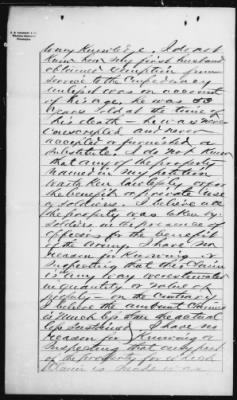 to my knowledge, I do not
know how my first husband
obtained exemption from
service in the Confederacy
unless it was on account
of his age, he was 53
years old at the time of
his death - he was never
conscripted and never
accepted or furnished a
substitute. I do not know
that any of the property
named in my petition
was taken for
the benefit of private use
of soldiers. I believe all
the property was taken by
soldiers in the presence of
officers for the benefit
of the Army. I have no
reason for knowing or
suspecting that this claim
is in any way
in quantity or value of
property - on the contrary
I believe the amount
is much less than the actual
loss sustained. I have no
reason for knowing or
suspecting that any part
of the property for which
claim is made was